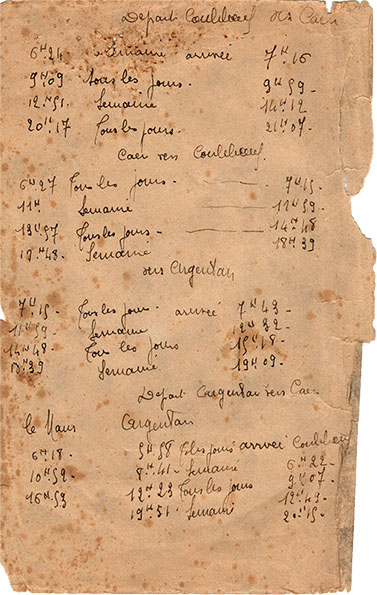 Depart Coulibœuf vers Caen
6H24 Semaine arrivée 7H16
9H09 tous les jours. 9H59-
12H51 Semaine 14H12
20H17 Tous les jours. 21H07-
Caen vers Coulibœuf
6H27 Tous les jours - 7H15-
11H Semaine 11H59-
13H57 Tous les jours - 14H48
Semaine 18H39
vers Argentan
7H15- Tous les jours arrivée 7H43-
11H59- Semaine
14H48- Tous les jours 15H18
18H39 Semaine 19H09-
Depart Argentan vers Caen
le Mans Argentan
6H18- 5H58 Tous les jours arrivée Coulibœuf
10H52- 8H41- Semaine 6H22-
16H53 12H23 Tous les jours 9H07-
19H51- Semaine 12H49-
20H15-